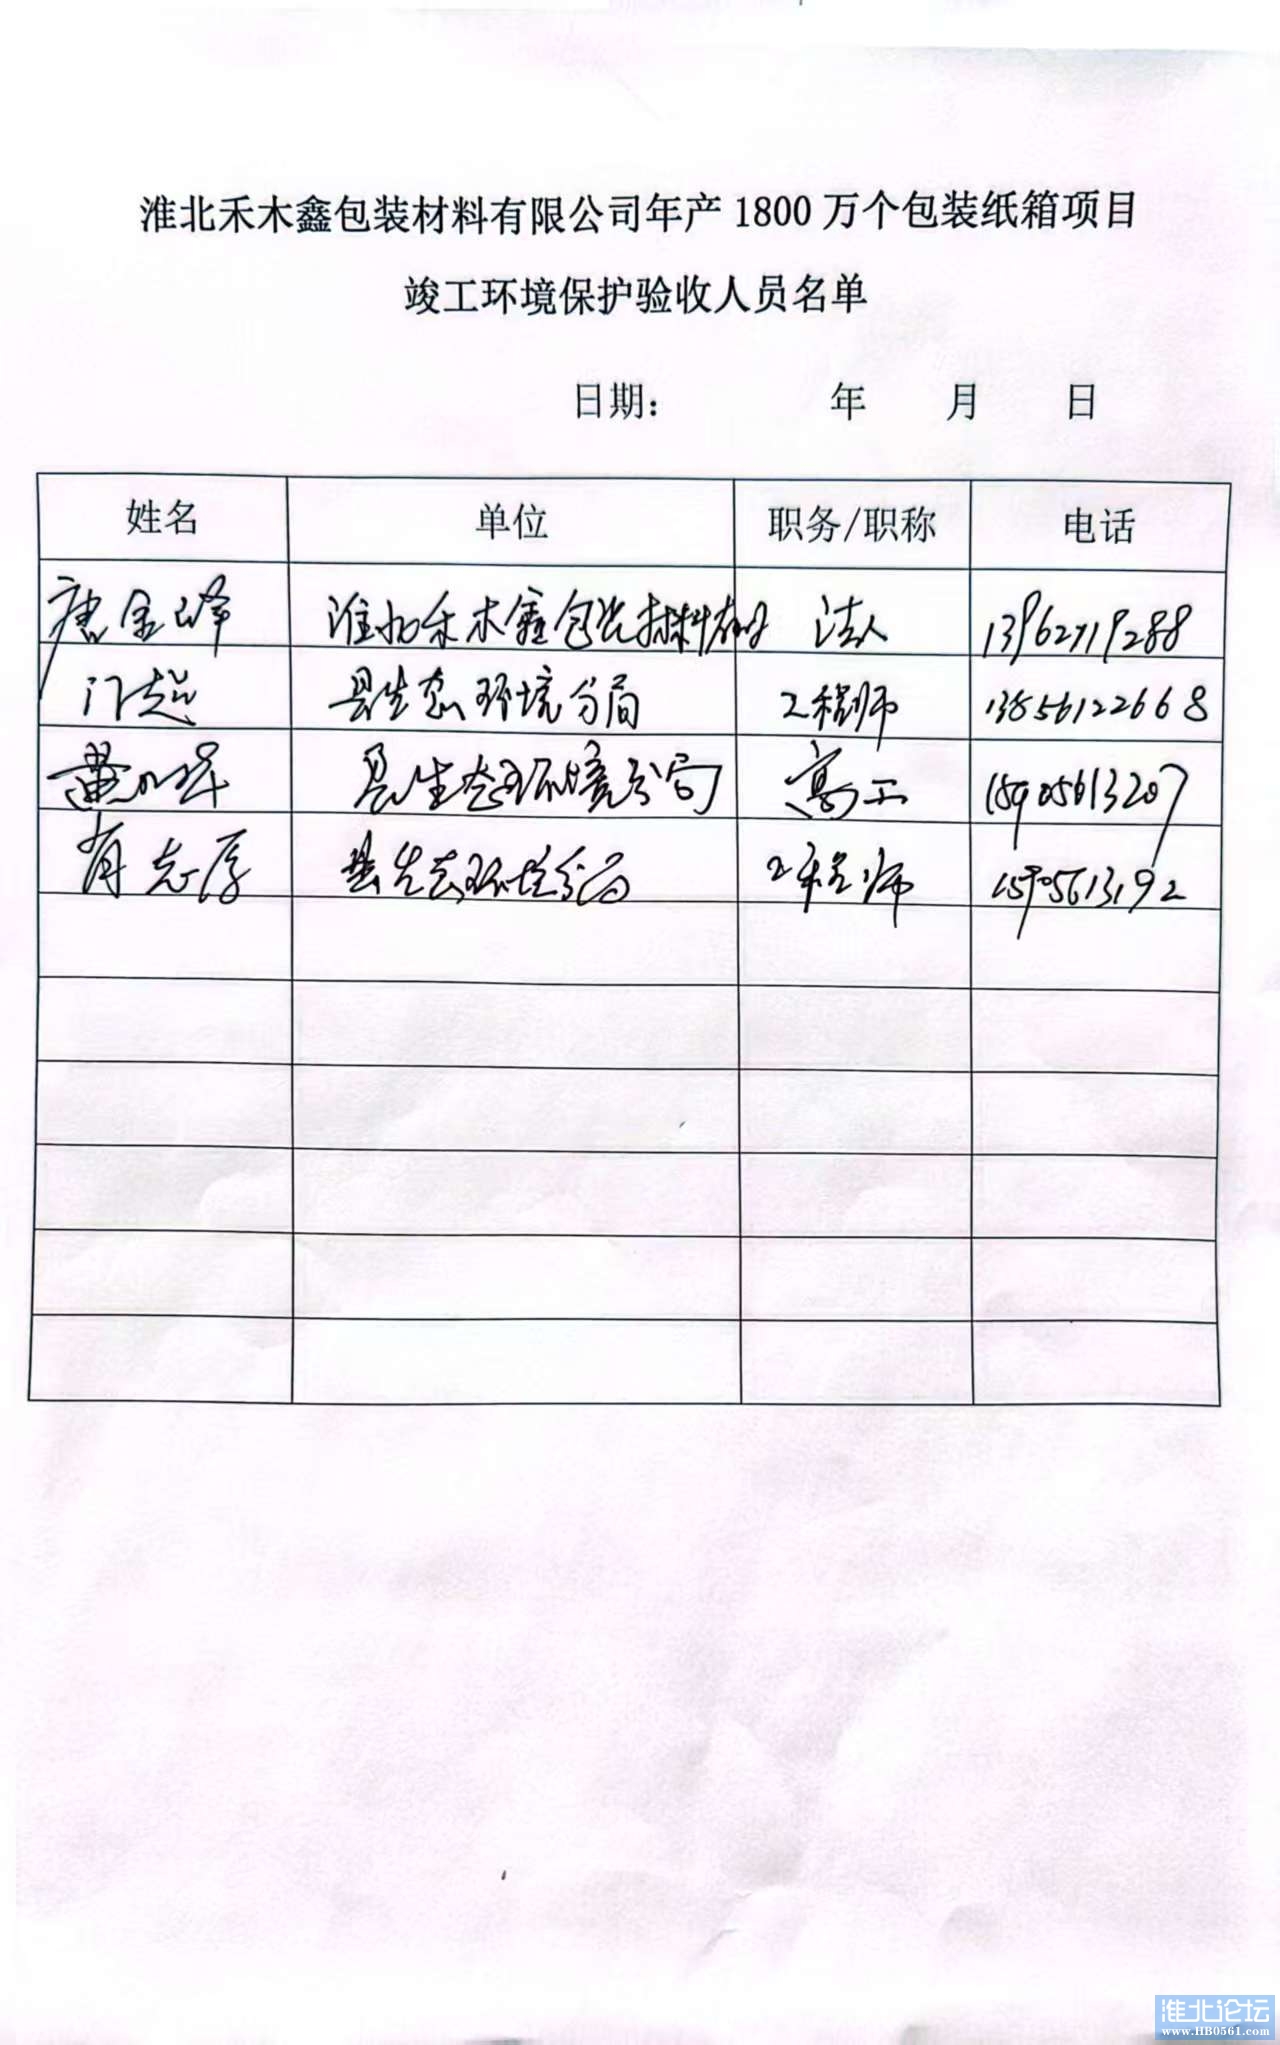 淮北禾木鑫包装材料有限公司年产1800万个包装纸箱项目
竣工环境保护验收人员名单
日期： 年 月 日
姓名 单位 职务/职称 电话
唐金峰 淮北禾木鑫包装材料有限 法人 13962719288
门超 县生态环境分局 工程师 13856122668
县生态环境分局 高工 15905613207
志厚 县生态环境分局 工程师 15905613192
淮北论坛
www.HB0561.com